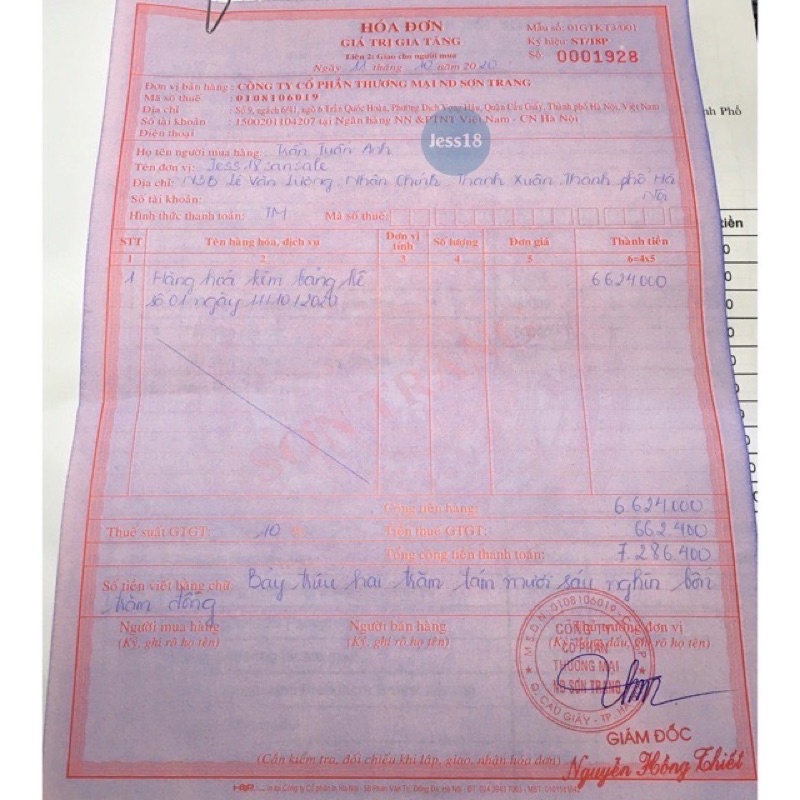 HÓA ĐƠN
GIÁ TRỊ GIA TĂNG
Liên 2: Giao cho người mua
Ngày 11 tháng 10 năm 2020
Mẫu số: 01GTKT3/001
Ký hiệu: ST/18P
Số: 0001928
Đơn vị bán hàng : CÔNG TY CỔ PHẦN THƯƠNG MẠI ND SƠN TRANG
Mã số thuế : 0108106019
Địa chỉ : Số 9, ngách 6/81, ngõ 6 Trần Quốc Hoàn, Phường Dịch Vọng Hậu, Quận Cầu Giấy, Thành phố Hà Nội, Việt Nam
Số tài khoản : 1500201104207 tại Ngân hàng NN & PTNT Việt Nam - CN Hà Nội
Điện thoại
Jess18
Họ tên người mua hàng: Trần Tuấn Anh
Tên đơn vị: Jess18sansale
Địa chỉ: Lê Văn Lương, Nhân Chính, Thanh Xuân, Thành phố Hà Nội
Số tài khoản:
Hình thức thanh toán: TM Mã số thuế:
STT Tên hàng hóa, dịch vụ Đơn vị tính Số lượng Đơn giá Thành tiền
1 2 3 4 5 6=4x5
1 Hàng hoá kèm bảng kê 6624000
số 01 ngày 11/10/2020
SƠN TRANG
Cộng tiền hàng: 6.624.000
Thuế suất GTGT: 10 % Tiền thuế GTGT: 662.400
Tổng cộng tiền thanh toán: 7.286.400
Số tiền viết bằng chữ Bảy triệu hai trăm tám mươi sáu nghìn bốn
trăm đồng
Người mua hàng Người bán hàng Thủ trưởng đơn vị
(Ký, ghi rõ họ tên) (Ký, ghi rõ họ tên) (Ký, đóng dấu, ghi rõ họ tên)
M.S.D.N: 0108106019
CÔNG TY
CỔ PHẦN
THƯƠNG MẠI
ND SƠN TRANG
Q. CẦU GIẤY - TP. HÀ NỘI
GIÁM ĐỐC
Nguyễn Hồng Thiết
(Cần kiểm tra, đối chiếu khi lập, giao, nhận hóa đơn)
nh Phố
tiền